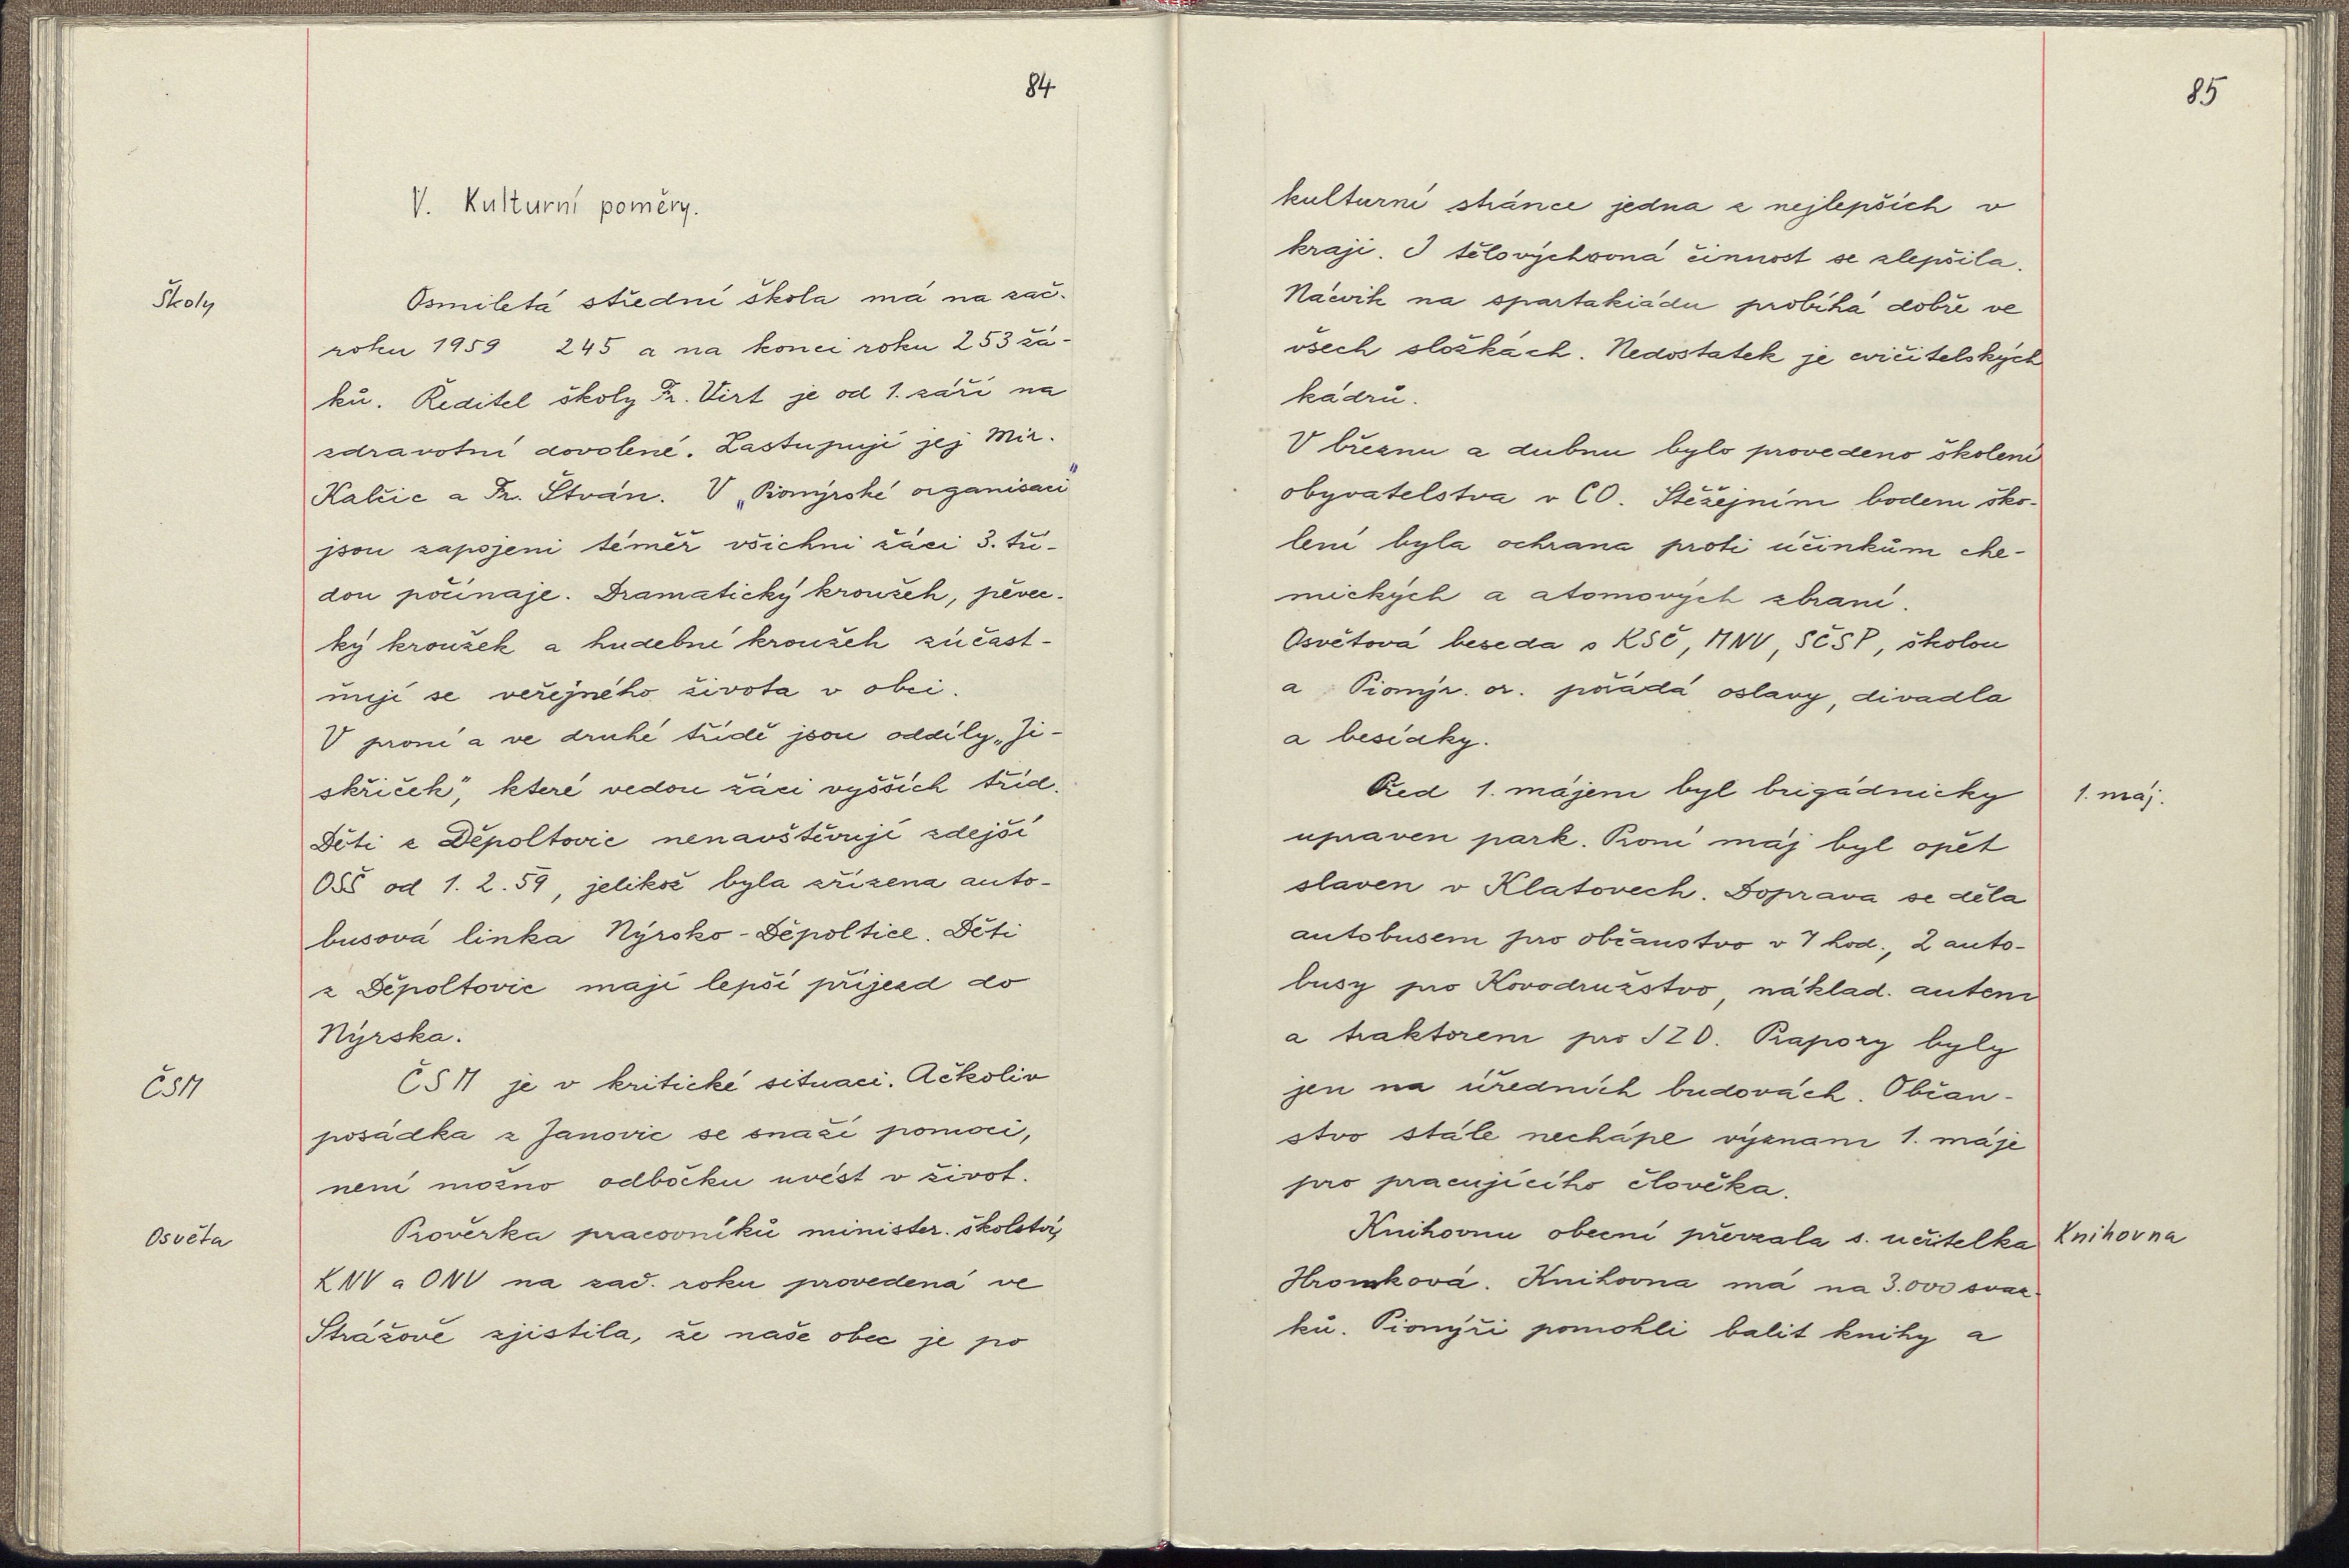 84
V. Kulturní poměry.
Školy
Osmiletá střední škola má na zač.
roku 1959 245 a na konci roku 253 žá-
ků. Ředitel školy Fr. Virt je od 1. září na
zdravotní dovolené. Zastupují jej Mir.
Kalčic a Fr. Štván. V „Pionýrské organisaci"
jsou zapojeni téměř všichni žáci 3. tří-
dou počínaje. Dramatický kroužek, pěvec-
ký kroužek a hudební kroužek zúčast-
ňují se veřejného života v obci.
V první a ve druhé třídě jsou oddíly „Ji-
skřiček", které vedou žáci vyšších tříd.
Děti z Děpoltovic nenavštěvují zdejší
OSŠ od 1. 2. 59, jelikož byla zřízena auto-
busová linka Nýrsko - Děpoltice. Děti
z Děpoltovic mají lepší příjezd do
Nýrska.
ČSM
ČSM je v kritické situaci. Ačkoliv
posádka z Janovic se snaží pomoci,
není možno odbočku uvést v život.
Osvěta
Prověrka pracovníků minister. školství,
KNV a ONV na zač. roku provedená ve
Strážově zjistila, že naše obec je po
85
kulturní stránce jedna z nejlepších v
kraji. I tělovýchovná činnost se zlepšila.
Nácvik na spartakiádu probíhá dobře ve
všech složkách. Nedostatek je cvičitelských
kádrů.
V březnu a dubnu bylo provedeno školení
obyvatelstva v CO. Stěžejním bodem ško-
lení byla ochrana proti účinkům che-
mických a atomových zbraní.
Osvětová beseda s KSČ, MNV, SČSP, školou
a Pionýr. or. pořádá oslavy, divadla
a besídky.
1. máj.
Před 1. májem byl brigádnicky
upraven park. První máj byl opět
slaven v Klatovech. Doprava se děla
autobusem pro občanstvo v 7 hod., 2 auto-
busy pro Kovodružstvo, náklad. autem
a traktorem pro JZD. Prapory byly
jen na úředních budovách. Občan-
stvo stále nechápe význam 1. máje
pro pracujícího člověka.
Knihovna
Knihovnu obecní převzala s. učitelka
Hromková. Knihovna má na 3.000 svaz-
ků. Pionýři pomohli balit knihy a